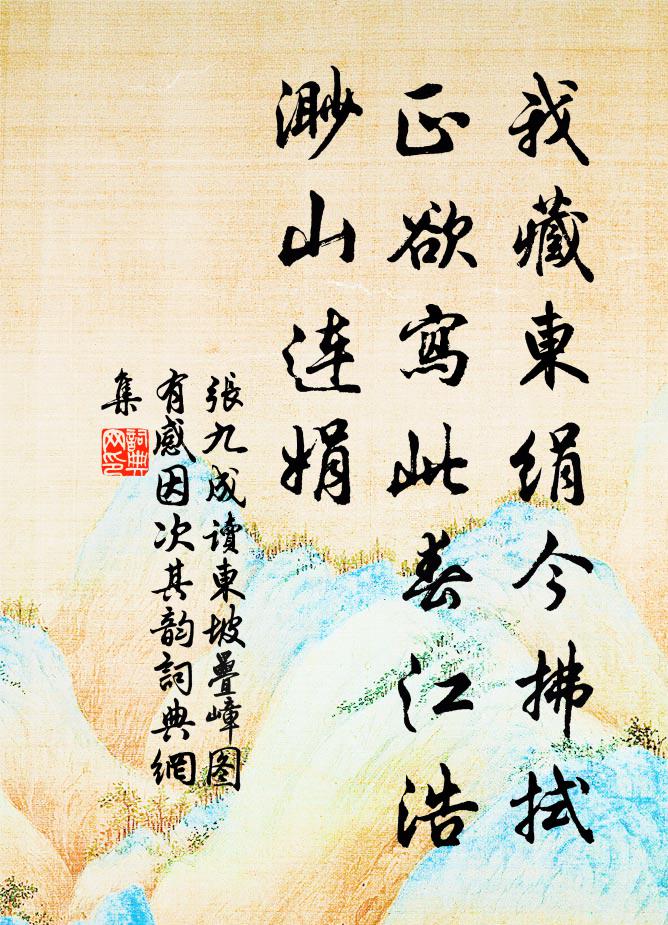 我藏東絹今拂拭
正欲寫此春江浩
渺山連娟
張九成讀東坡疊嶂图
有感因次其韵詞典網
集
詞典網印